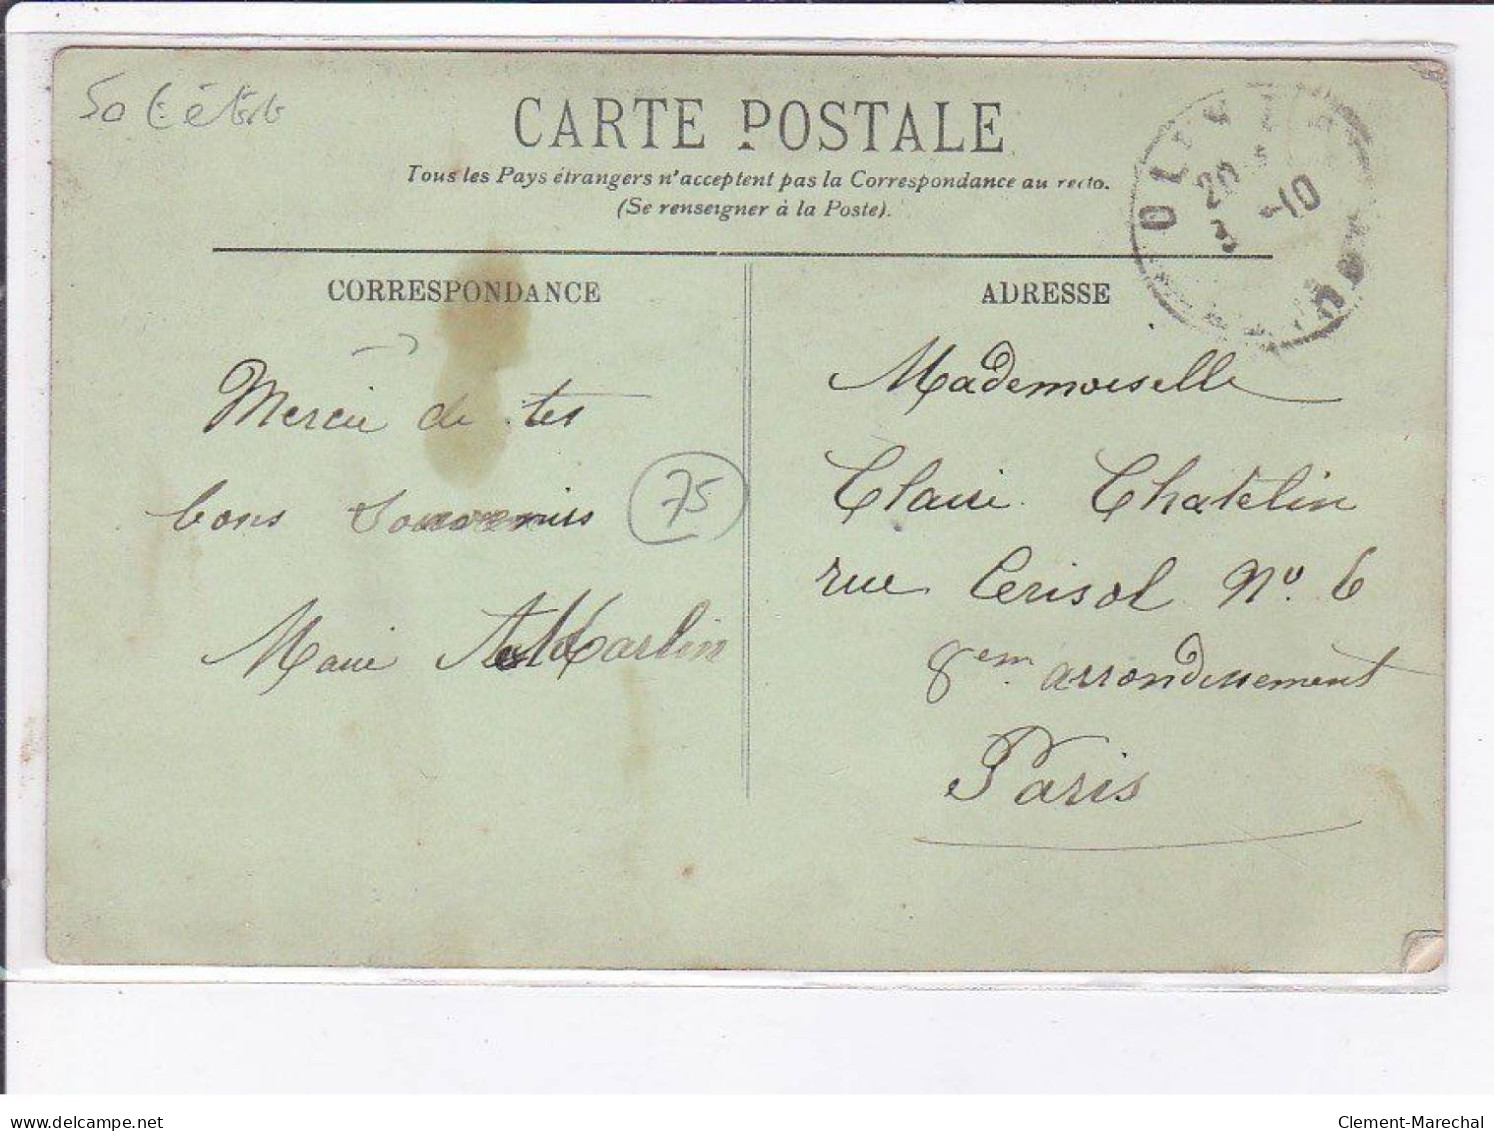 CARTE POSTALE
Tous les Pays étrangers n'acceptent pas la Correspondance au recto.
(Se renseigner à la Poste).
CORRESPONDANCE
Mercie de tes
bons Souvenirs
Marie Martin
75
ADRESSE
Mademoiselle
Claire Chatelin
rue Cerisol No. 6
8em arrondissement
Paris
20
3 -10
delcampe.net
Clement-Marechal